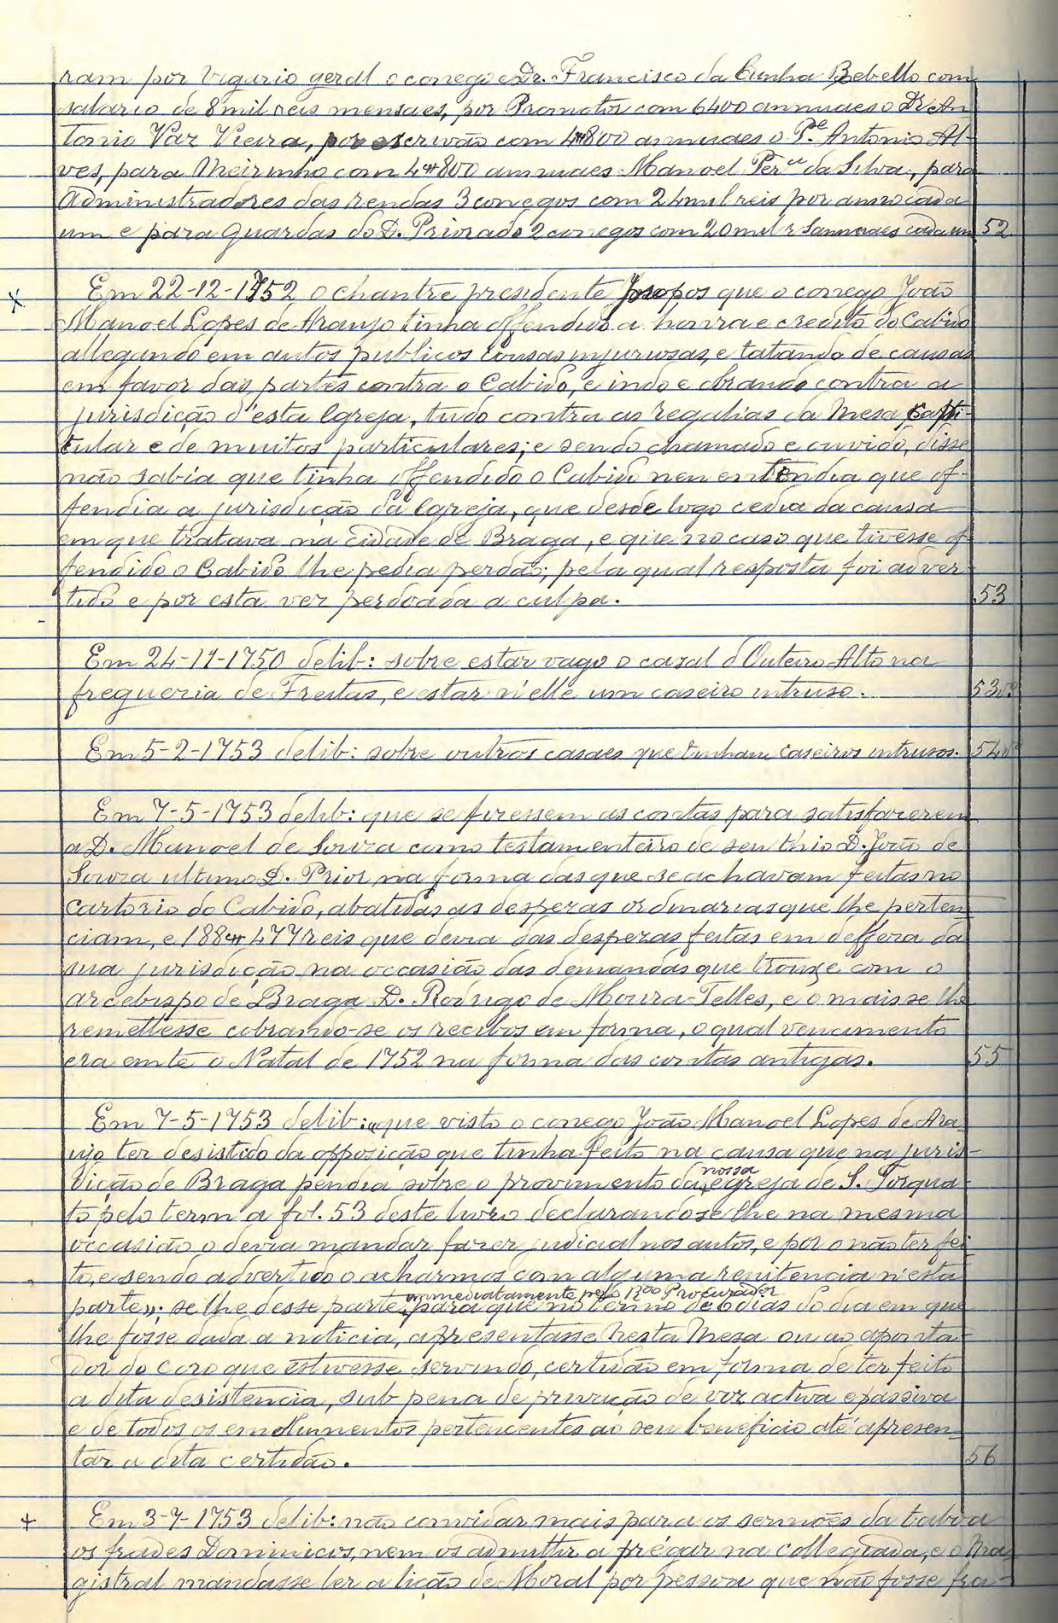 ram por Vigario geral o conego e Dr. Francisco da Cunha Rebello com
salario de 8 mil reis mensaes, por Promotor com 6400 annuaes o Dr. An-
tonio Vaz Vieira, por escrivão com 4#800 annuaes o P.e Antonio Al-
ves, para Meirinho com 4#800 annuaes Manoel Per.ª da Silva, para
Administradores das rendas 3 conegos com 24 mil reis por anno cada
um e para Guardas do D. Priorado 2 conegos com 20 mil r.s annuaes cada um 52
x Em 22-12-1752 o chantre presidente propos que o conego João
Manoel Lopes de Araujo tinha offendido a honra e credito do Cabido
allegando em autos publicos cousas injuriosas, e tatando de causas
em favor das partes contra o Cabido, e indo e obrando contra a
jurisdição d'esta Igreja, tudo contra as regalias da Mesa Capi-
tular e de muitos particulares; e sendo chamado e ouvido, disse
não sabia que tinha offendido o Cabido nem entendia que of-
fendia a jurisdição da Igreja, que desde logo cedia da causa
em que tratava na cidade de Braga, e que no caso que tivesse of-
fendido o Cabido lhe pedia perdão; pela qual resposta foi adver-
tido e por esta vez perdoada a culpa. 53
Em 24-11-1750 delib: sobre estar vago o casal d'Outeiro Alto na
freguezia de Freitas, e estar n'elle um caseiro intruso. 53 v.º
Em 5-2-1753 delib: sobre outros casaes que tinham caseiros intrusos. 54 v.º
Em 7-5-1753 delib: que se fizessem as contas para satisfazerem
a D. Manoel de Souza como testamenteiro de seu tio D. João de
Souza ultimo D. Prior na forma das que se achavam feitas no
Cartorio do Cabido, abatidas as despezas ordinarias que lhe perten-
ciam, e 188#477 reis que devia das despezas feitas em deffeza da
sua jurisdição na occasião das demandas que trouxe com o
arcebispo de Braga D. Rodrigo de Moura Telles, e o mais se lhe
remettesse cobrando-se os recibos em forma, o qual vencimento
era em té o Natal de 1752 na forma das contas antigas. 55
Em 7-5-1753 delib: «que visto o conego João Manoel Lopes de Ara-
ujo ter desistido da opposição que tinha feito na causa que na juris-
dição de Braga pendia sobre o provimento da nossa egreja de S. Torqua-
to pelo term a fol. 53 deste livro declarando se lhe na mesma
occasião o devia mandar fazer judicial nos autos, e por o não ter fei-
to, e sendo advertido o acharmos com alguma renitencia n'esta
parte»; se lhe desse parte immediatamente pelo R.do Procurador para que no termo de 6 dias do dia em que
lhe fosse dada a noticia, apresentasse nesta Mesa ou ao aponta-
dor do coro que estivesse servindo, certidão em forma de ter feito
a dita desistencia, sub pena de privação de voz activa e passiva
e de todos os emolumentos pertencentes ao seu beneficio até apresen-
tar a dita certidão. 56
+ Em 3-7-1753 delib: não convidar mais para os sermões da taboa
os frades Dominicos, nem os admittir a prégar na collegiada, e o Ma-
gistral mandasse ler a lição de Moral por pessoa que não fosse fra-